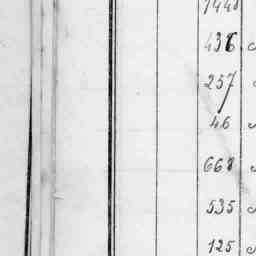 436
257
46
668
535
125